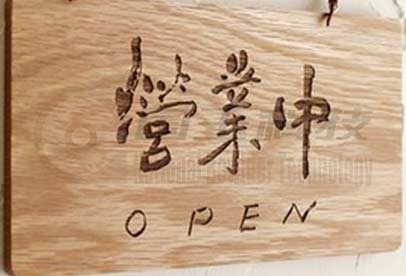 營業中
OPEN